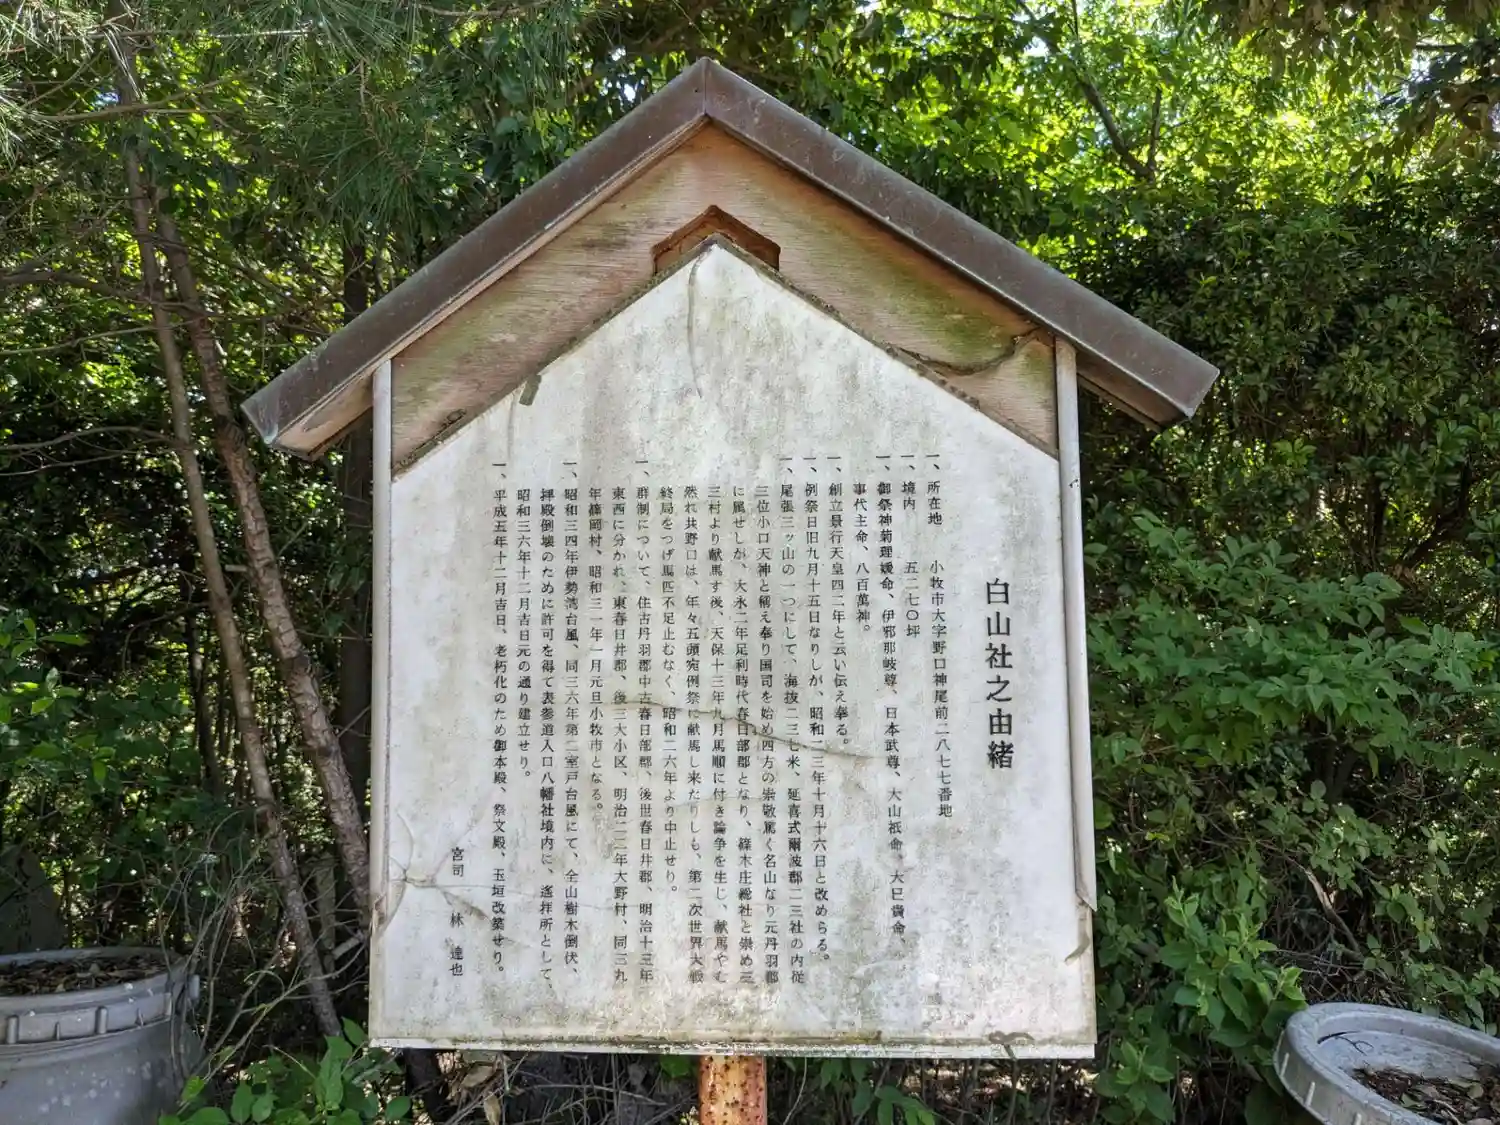 白山社之由緒
一、所在地　小牧市大字野口神尾前二八七七番地
一、境内　五二七〇坪
一、御祭神菊理媛命、伊邪那岐尊、日本武尊、大山祇命、大巳貴命、
事代主命、八百萬神。
一、創立景行天皇四二年と云い伝え奉る。
一、例祭日旧九月十五日なりしが、昭和二三年十月十六日と改めらる。
一、尾張三ッ山の一つにして、海抜二三七米、延喜式爾波郡二三社の内従
三位小口天神と称え奉り国司を始め四方の崇敬篤く名山なり元丹羽郡
に属せしが、大永二年足利時代春日部郡となり、篠木庄総社と崇め三
三村より献馬す後、天保十三年九月馬順に付き論争を生じ、献馬やむ
然れ共野口は、年々五頭宛例祭に献馬し来たりしも、第二次世界大戦
終局をつげ馬匹不足止むなく、昭和二六年より中止せり。
一、群制について、往古丹羽郡中古春日部郡、後世春日井郡、明治十三年
東西に分かれ、東春日井郡、後三大小区、明治二二年大野村、同三九
年篠岡村、昭和三一年一月元旦小牧市となる。
一、昭和三四年伊勢湾台風、同三六年第二室戸台風にて、全山樹木倒伏、
拝殿倒壊のために許可を得て表参道入口八幡社境内に、遙拝所として、
昭和三六年十二月吉日元の通り建立せり。
一、平成五年十二月吉日、老朽化のため御本殿、祭文殿、玉垣改築せり。
宮司　林　達也